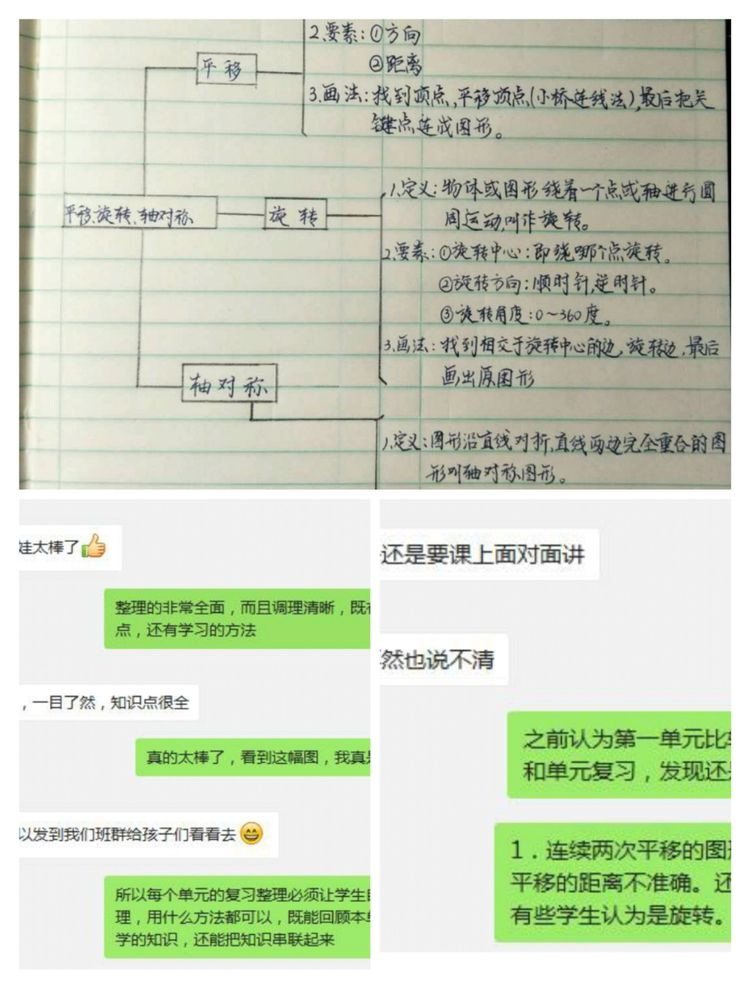 2.要素:①方向
②距离
平移
3.画法:找到顶点,平移顶点(小桥连线法),最后把关
键点连成图形。
1.定义:物体或图形绕着一个点或轴进行圆
平移、旋转、轴对称
旋转
周运动,叫作旋转。
2.要素:①旋转中心:即绕哪个点旋转。
②旋转方向:顺时针,逆时针。
③旋转角度:0~360度。
3.画法:找到相交于旋转中心的边,旋转边,最后
画出原图形
轴对称
1.定义:图形沿直线对折,直线两边完全重合的图
形叫轴对称图形。
娃太棒了
整理的非常全面,而且调理清晰,既
点,还有学习的方法
,一目了然,知识点很全
真的太棒了,看到这幅图,我真
以发到我们班群给孩子们看看去
所以每个单元的复习整理必须让学生
理,用什么方法都可以,既能回顾本
学的知识,还能把知识串联起来
还是要课上面对面讲
然也说不清
之前认为第一单元比
和单元复习,发现还
1.连续两次平移的图
平移的距离不准确。还
有些学生认为是旋转。